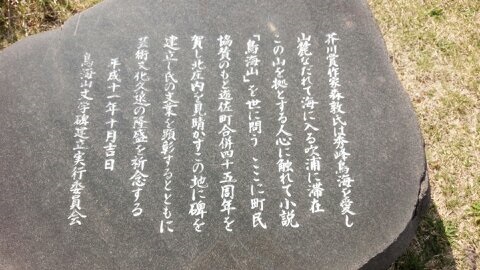 芥川賞作家森敦氏は秀峰鳥海を愛し
山麓なだれて海に入る吹浦に滞在
この山を拠とする人心に触れて小説
「鳥海山」を世に問う ここに町民
協賛のもと遊佐町合併四十五周年を
賀し北庄内を見晴かすこの地に碑を
建立し氏の文業を顕彰するとともに
芸術文化久遠の隆盛を祈念する
平成十一年十月吉日
鳥海山文学碑建立実行委員会